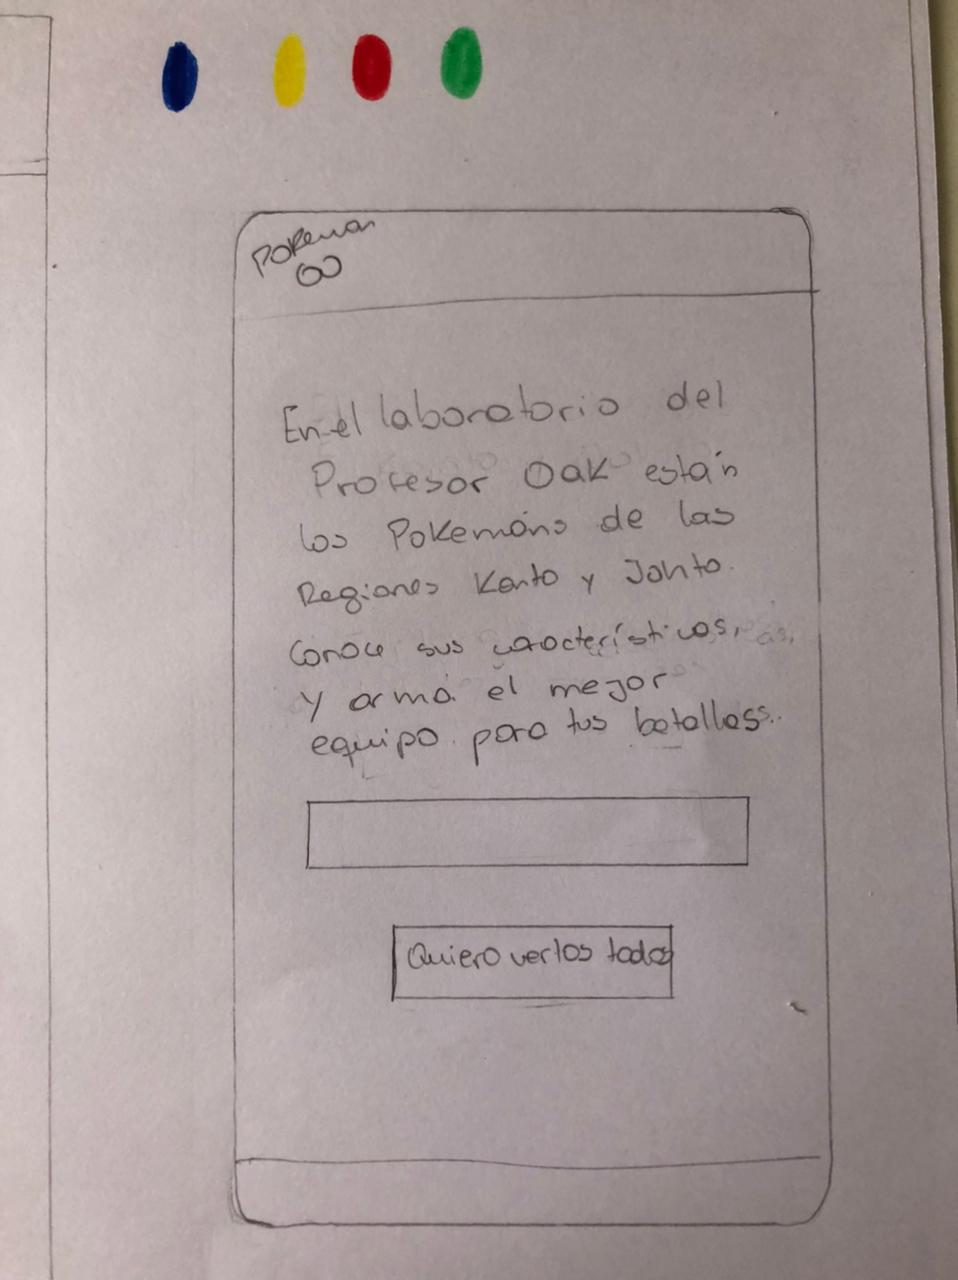 Pokemon
GO
En el laboratorio del
Profesor Oak están
los Pokemóns de las
Regiones Kanto y Johto.
Conoce sus características,
y arma el mejor
equipo para tus batallas.
Quiero verlos todos